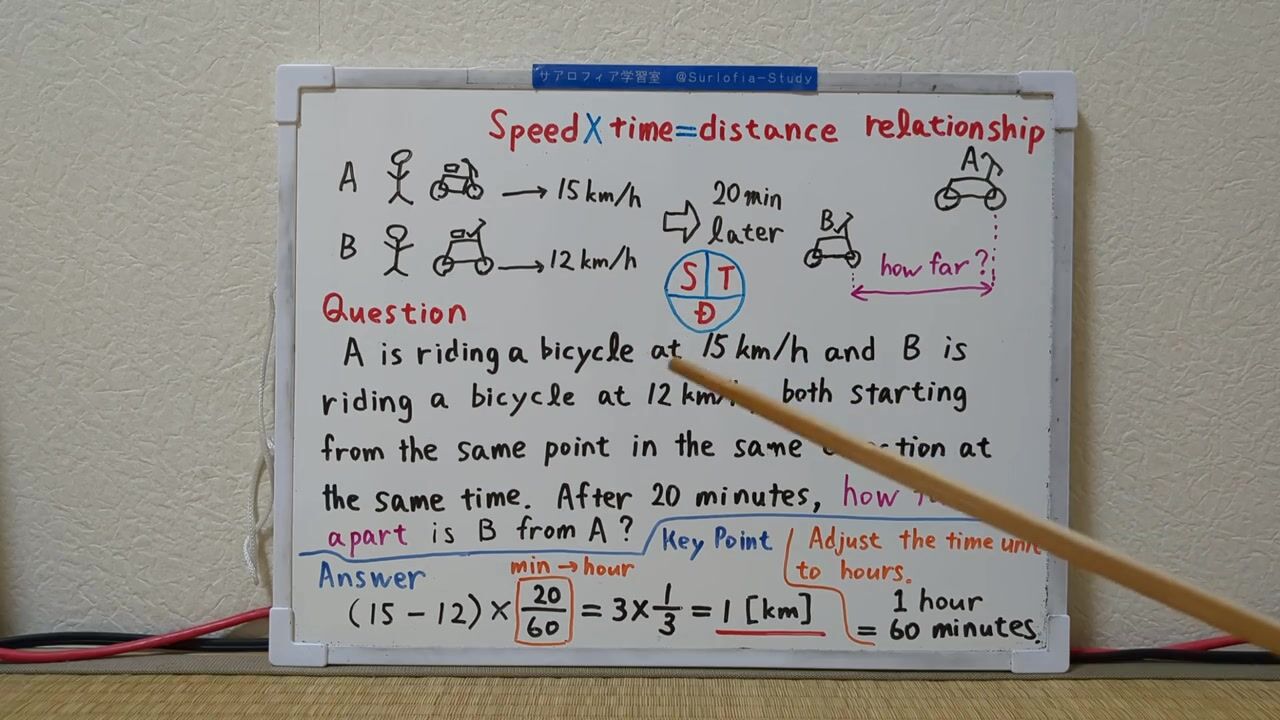 サアロフィア学習室 @Surlofia-Study
Speed X time = distance relationship
A → 15 km/h
B → 12 km/h
20 min
later
B
A
how far?
S T
D
Question
A is riding a bicycle at 15 km/h and B is
riding a bicycle at 12 km/ both starting
from the same point in the same tion at
the same time. After 20 minutes, how
apart is B from A?
Key Point
Adjust the time unit
to hours.
1 hour
= 60 minutes.
Answer
min → hour
(15 - 12) × 20/60 = 3 × 1/3 = 1 [km]